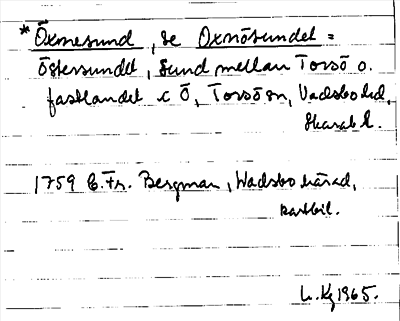 * Öxnesund, se Oxnösundet =
Östersundet, Sund mellan Torsö o.
fastlandet c Ö, Torsö sn, Vadsbo hd,
Skarab. l.
1759 E. Fr. Bergman, Wadsbo härad,
kartbil.
1965.